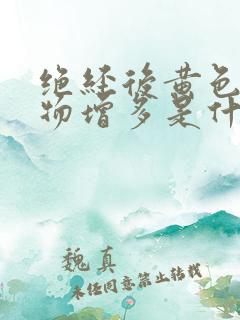 绝经后黄色
物增多是什
魏真
未经同意禁止转载